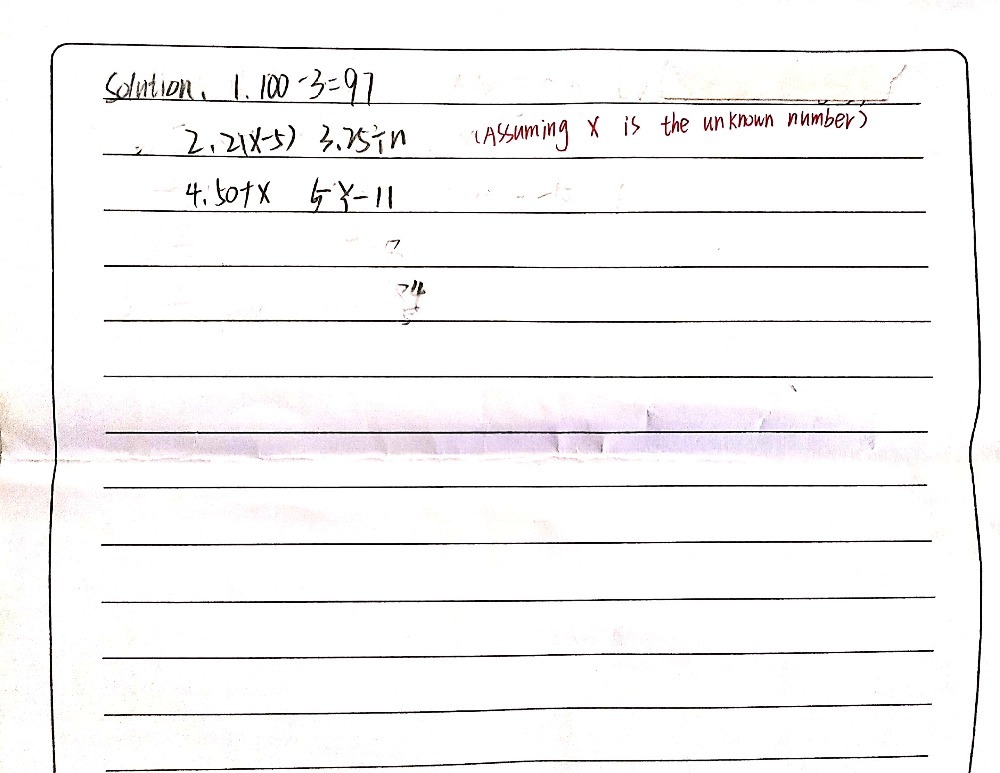 Solution. 1. 100-3=97
2. 2(x-5) 3. 75÷n (Assuming X is the unknown number)
4. 50+x 5 x-11